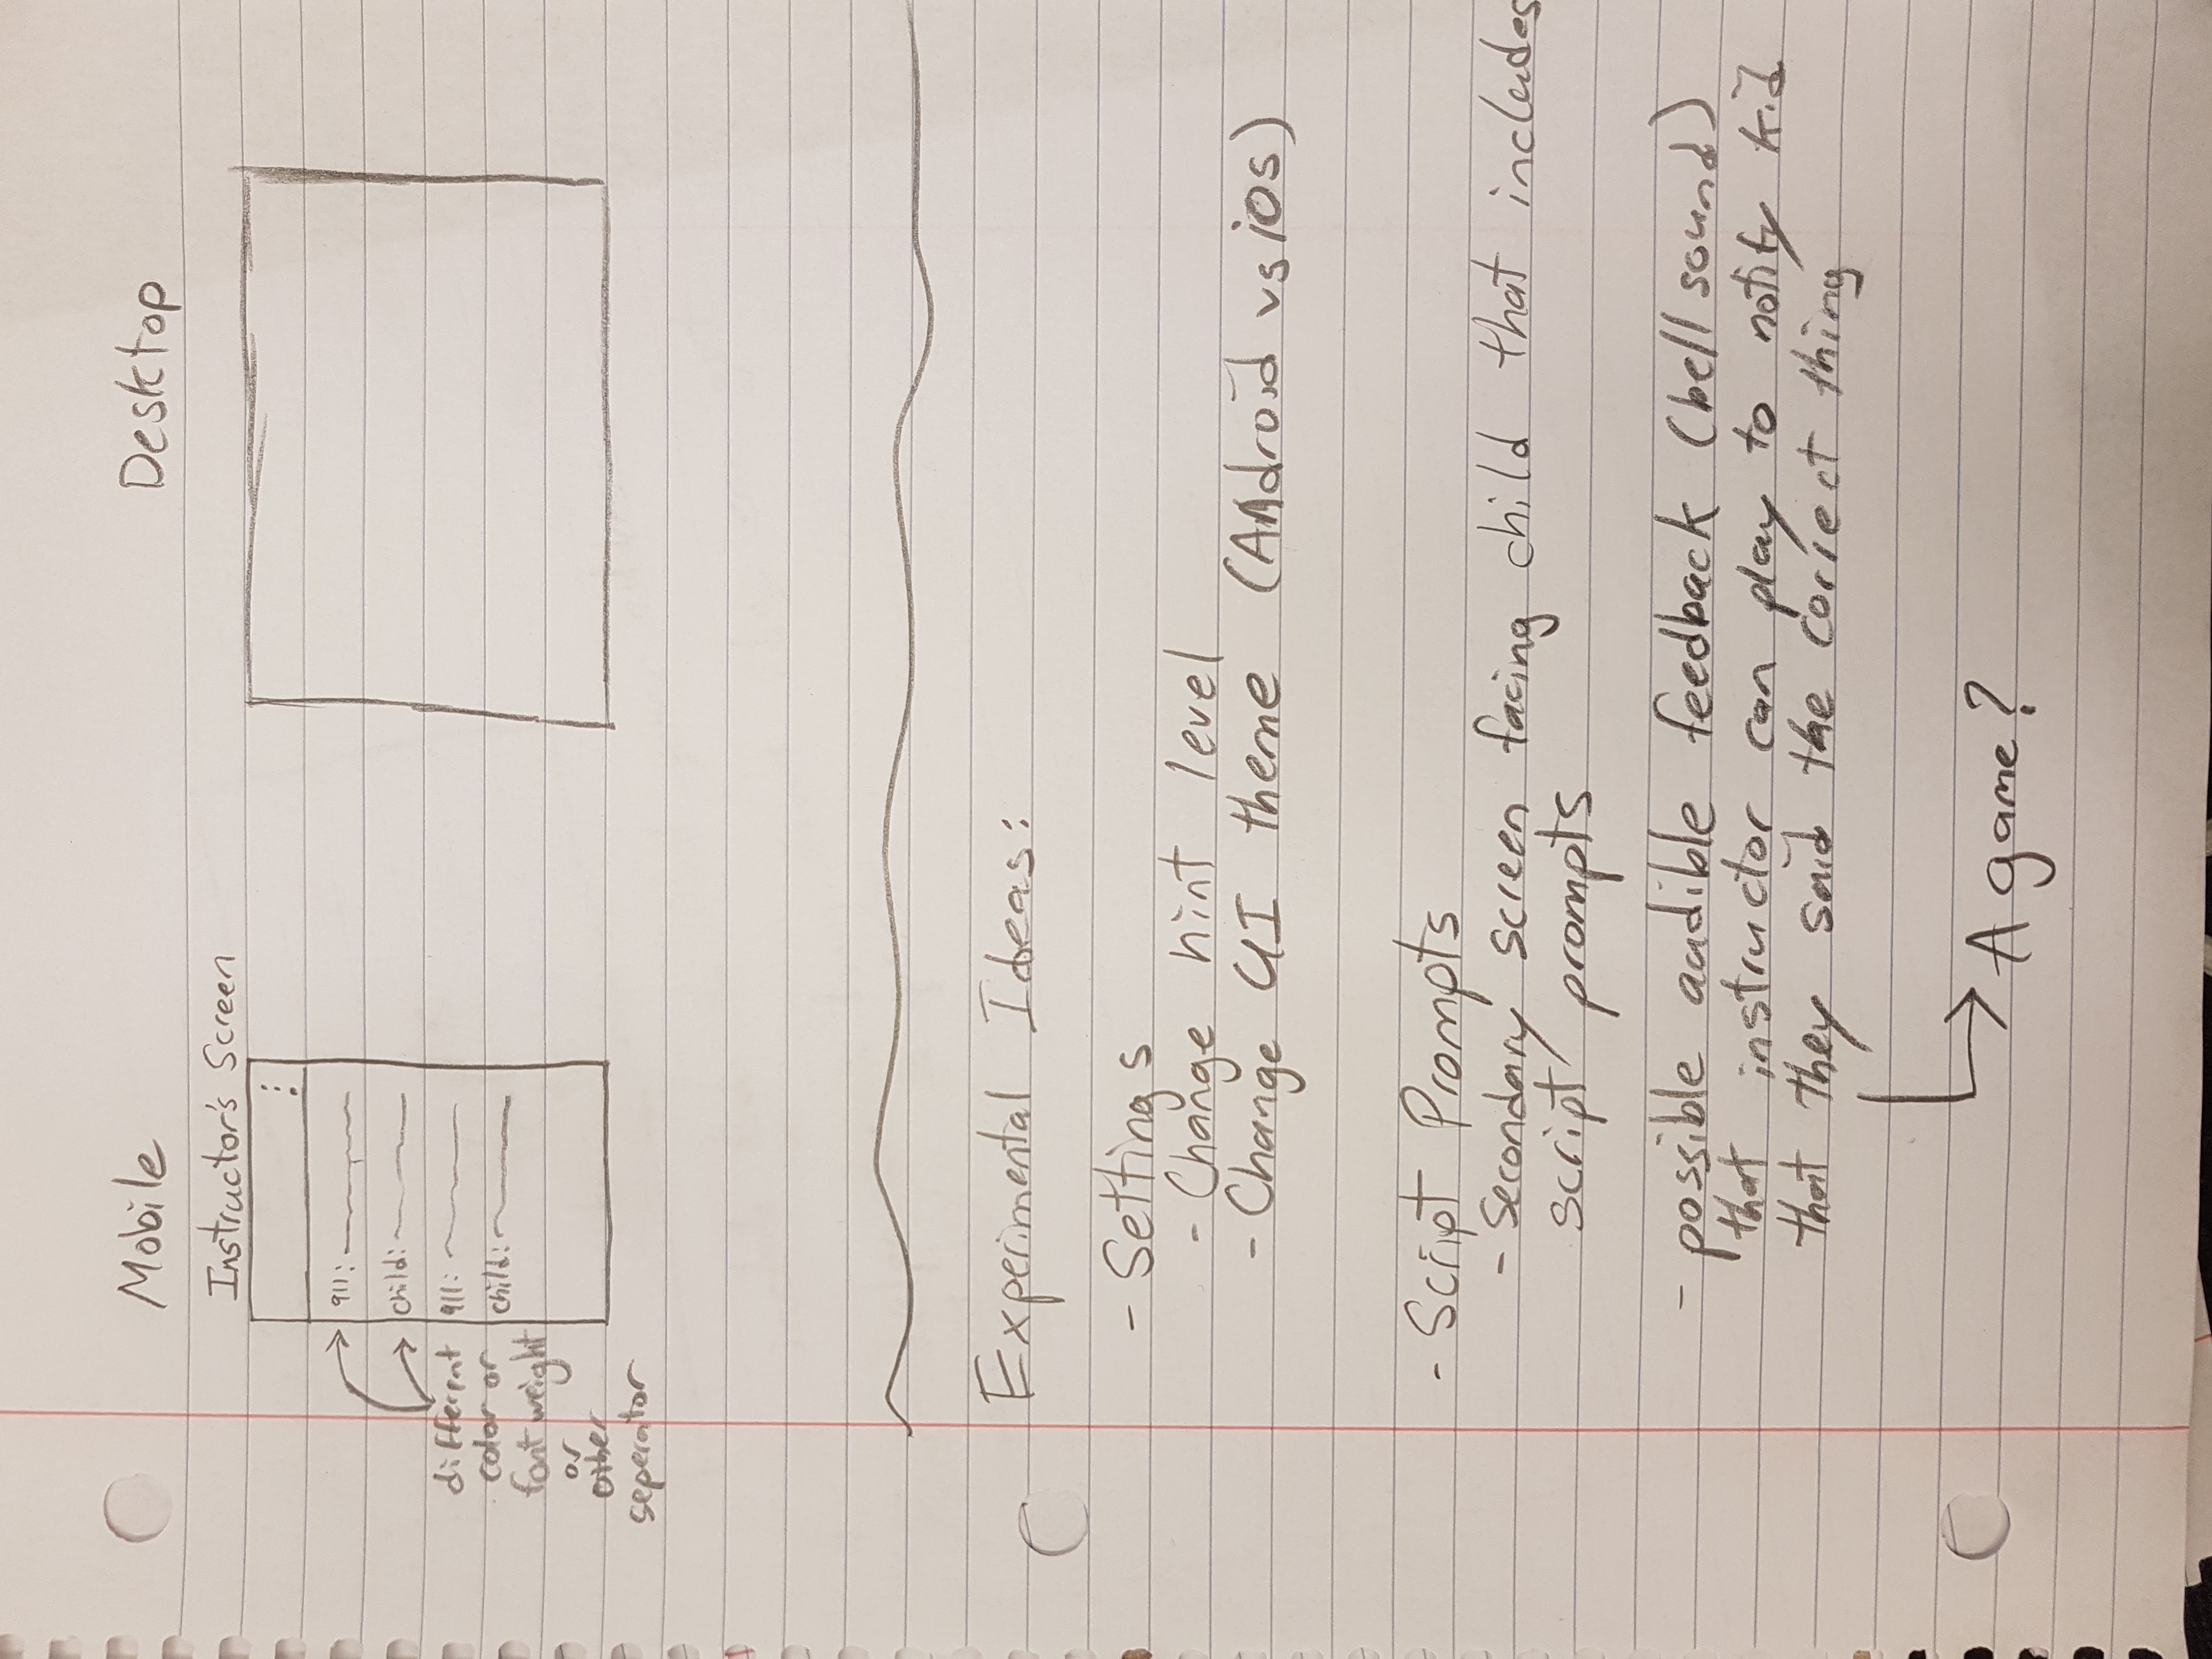 Mobile
Desktop
Instructor's Screen
911:
child:
911:
child:
different
color or
font weight
or
other
seperator
Experimental Ideas:
- Settings
- Change hint level
- Change UI theme (Android vs iOS)
- Script Prompts
- Secondary screen facing child that includes
script prompts
- possible audible feedback (bell sound)
that instructor can play to notify kid
that they said the correct thing
A game?